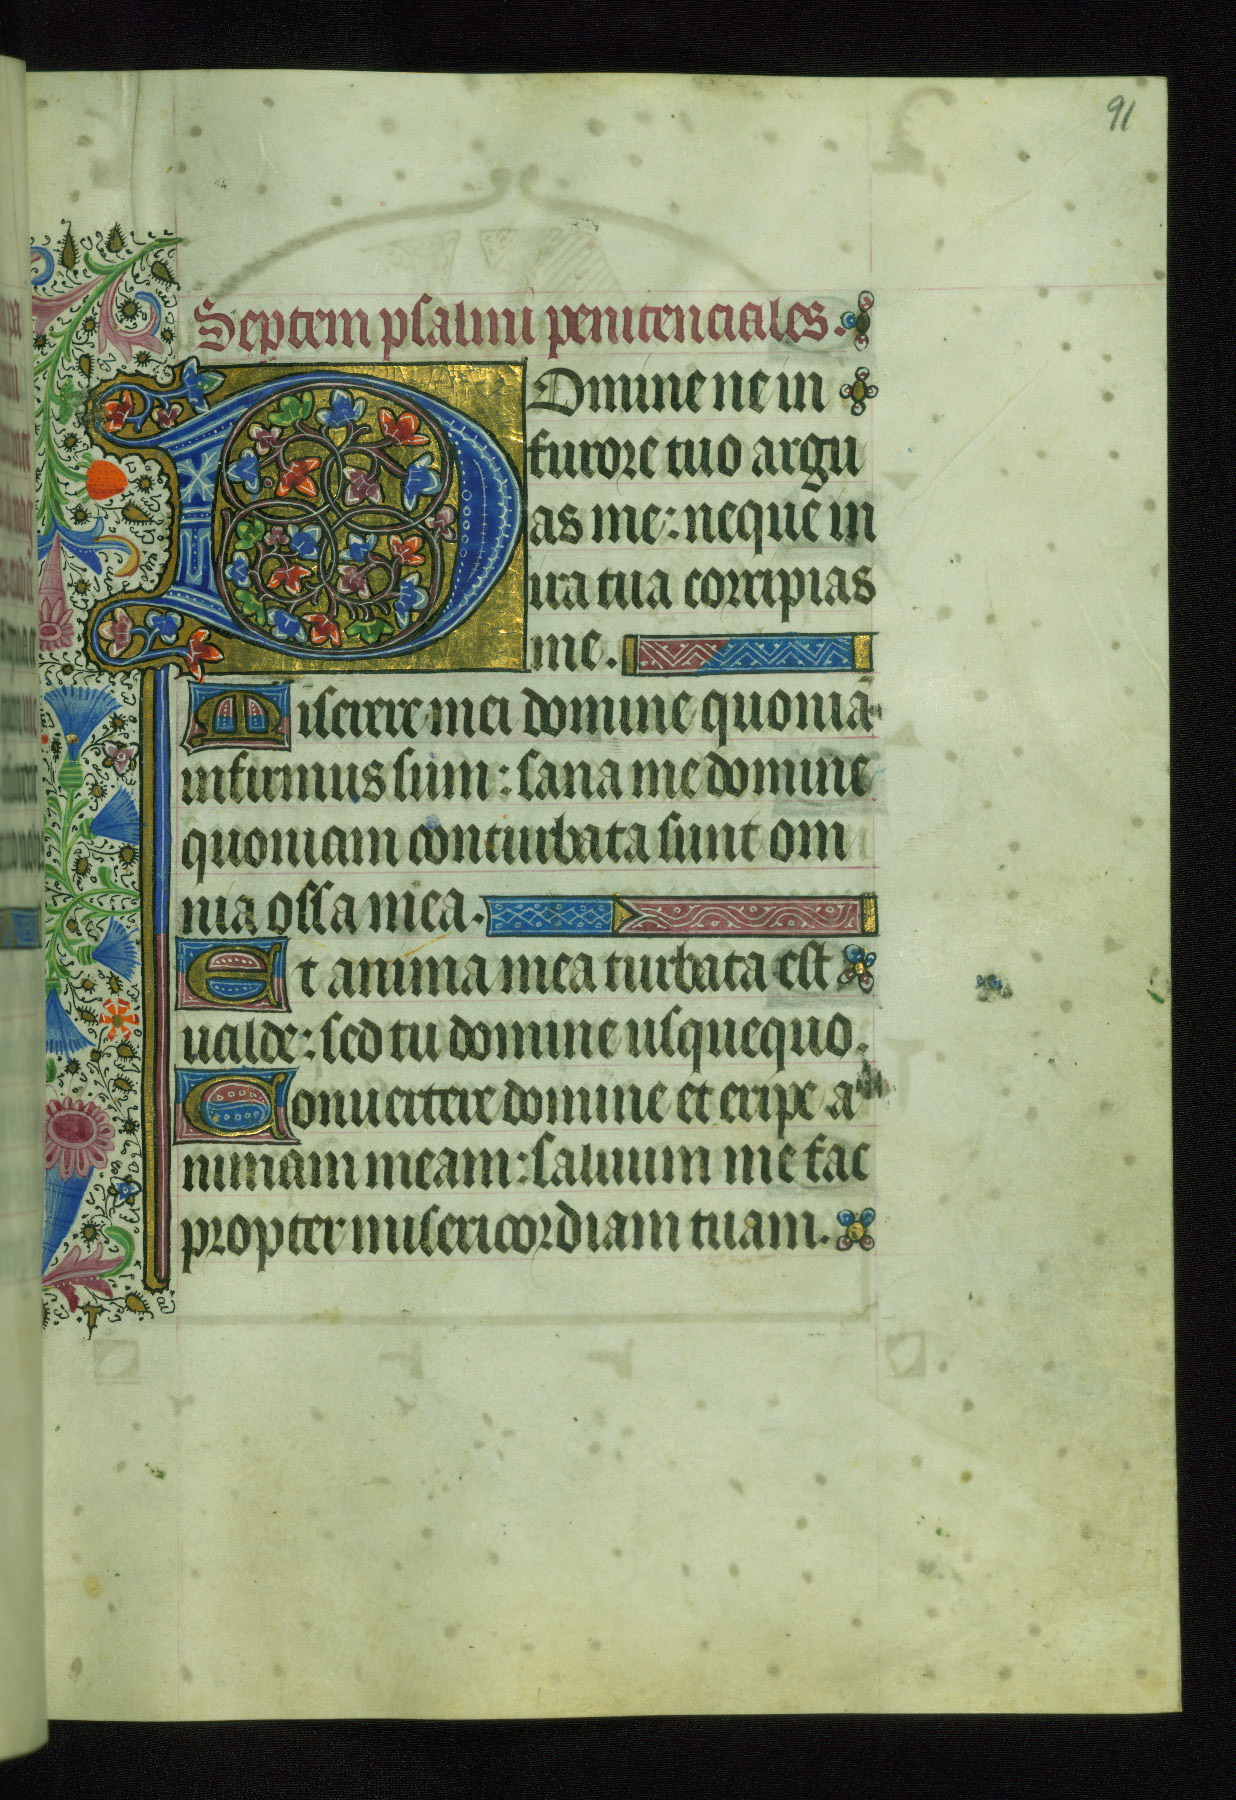 91
Septem psalmi penitenciales.
Domine ne in
furore tuo argu
as me: neque in
ira tua corripias
me.
Miserere mei domine quoniā
infirmus sum: sana me domine
quoniam conturbata sunt om
nia ossa mea.
Et anima mea turbata est
valde: sed tu domine usquequo.
Convertere domine et eripe a
nimam meam: saluum me fac
propter misericordiam tuam.